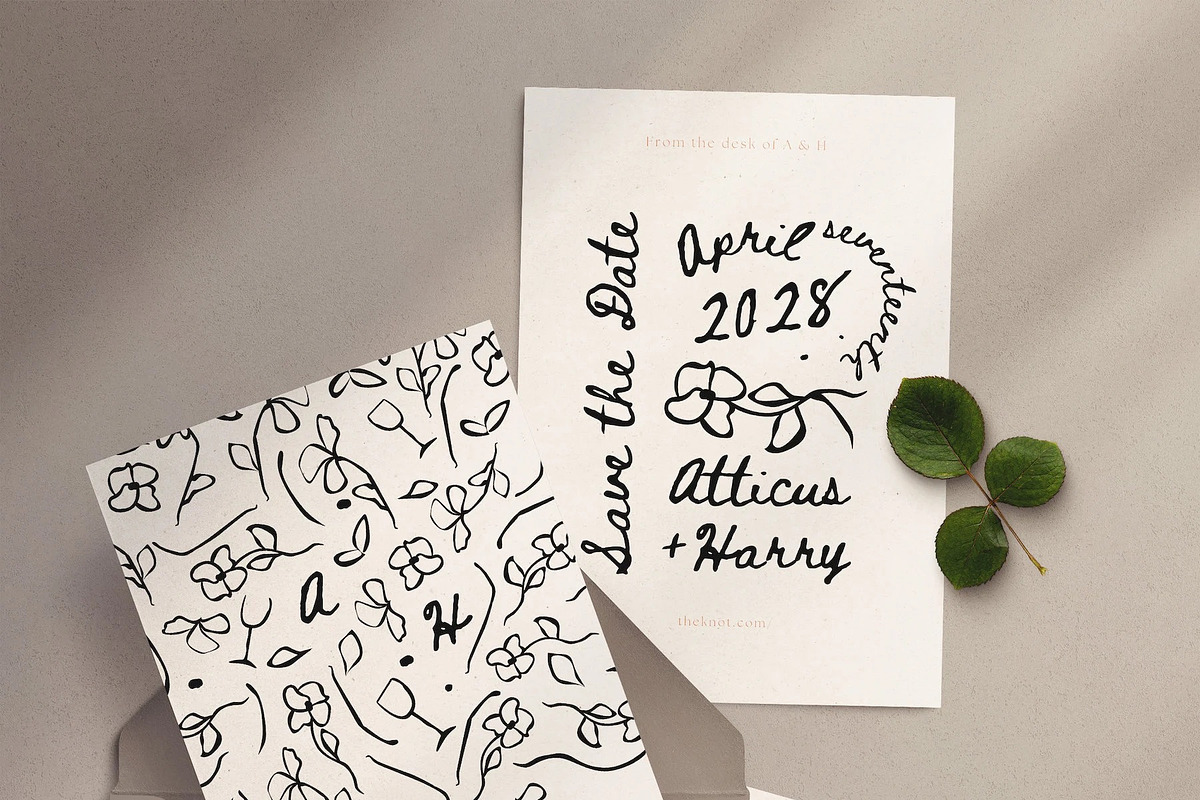 From the desk of A & H
Save the Date
April seventeenth
2028
Atticus
+ Harry
theknot.com/
A
H